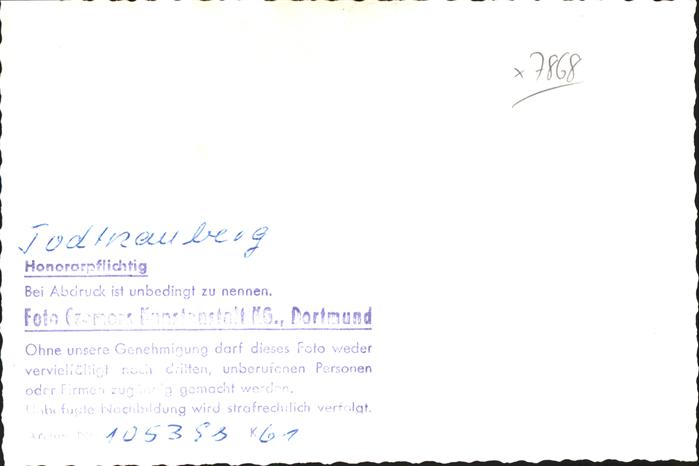 x 7868
Todtnauberg
Honorarpflichtig
Bei Abdruck ist unbedingt zu nennen.
Foto Kunstanstalt KG., Dortmund
Ohne unsere Genehmigung darf dieses Foto weder
vervielfältigt noch dritten, unberufenen Personen
oder Firmen zugängig gemacht werden.
Unbefugte Nachbildung wird strafrechtlich verfolgt.
Archiv Nr. K61